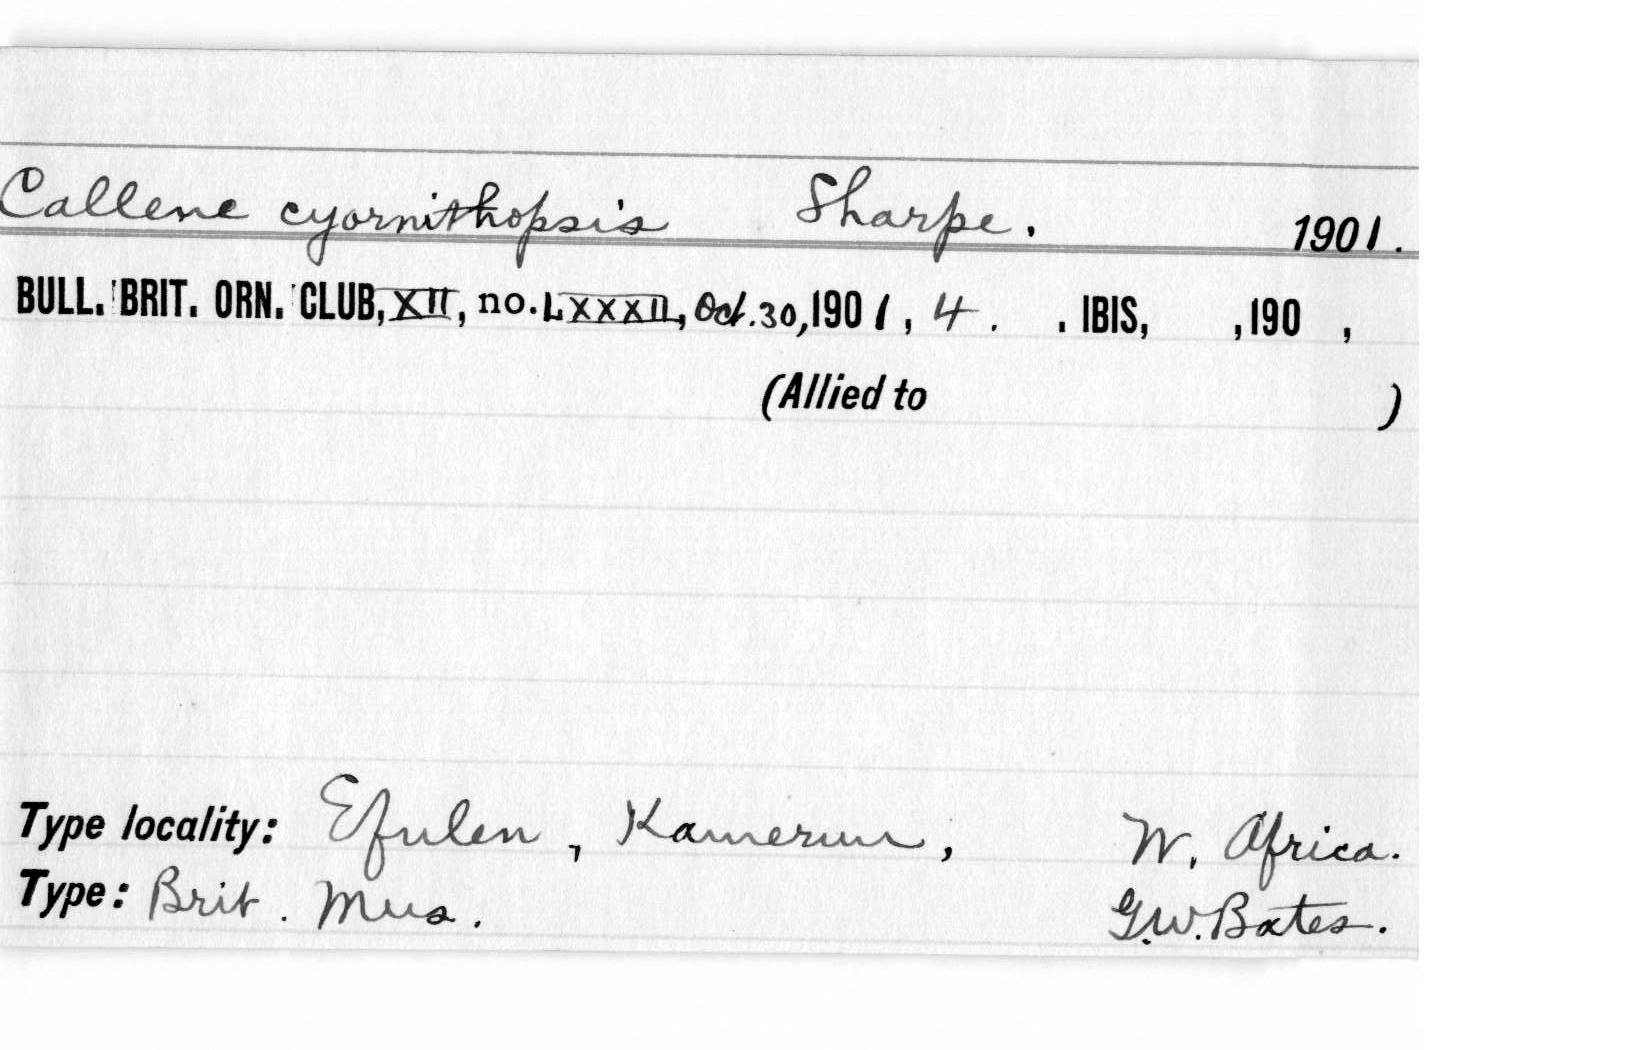 Callene cyornithopsis Sharpe. 1901.
BULL. BRIT. ORN. CLUB, XII, no. LXXXII, Oct. 30, 1901, 4. . IBIS, ,190 ,
(Allied to )
Type locality: Efulen, Kamerun, W. Africa.
Type: Brit. Mus. G.W. Bates.